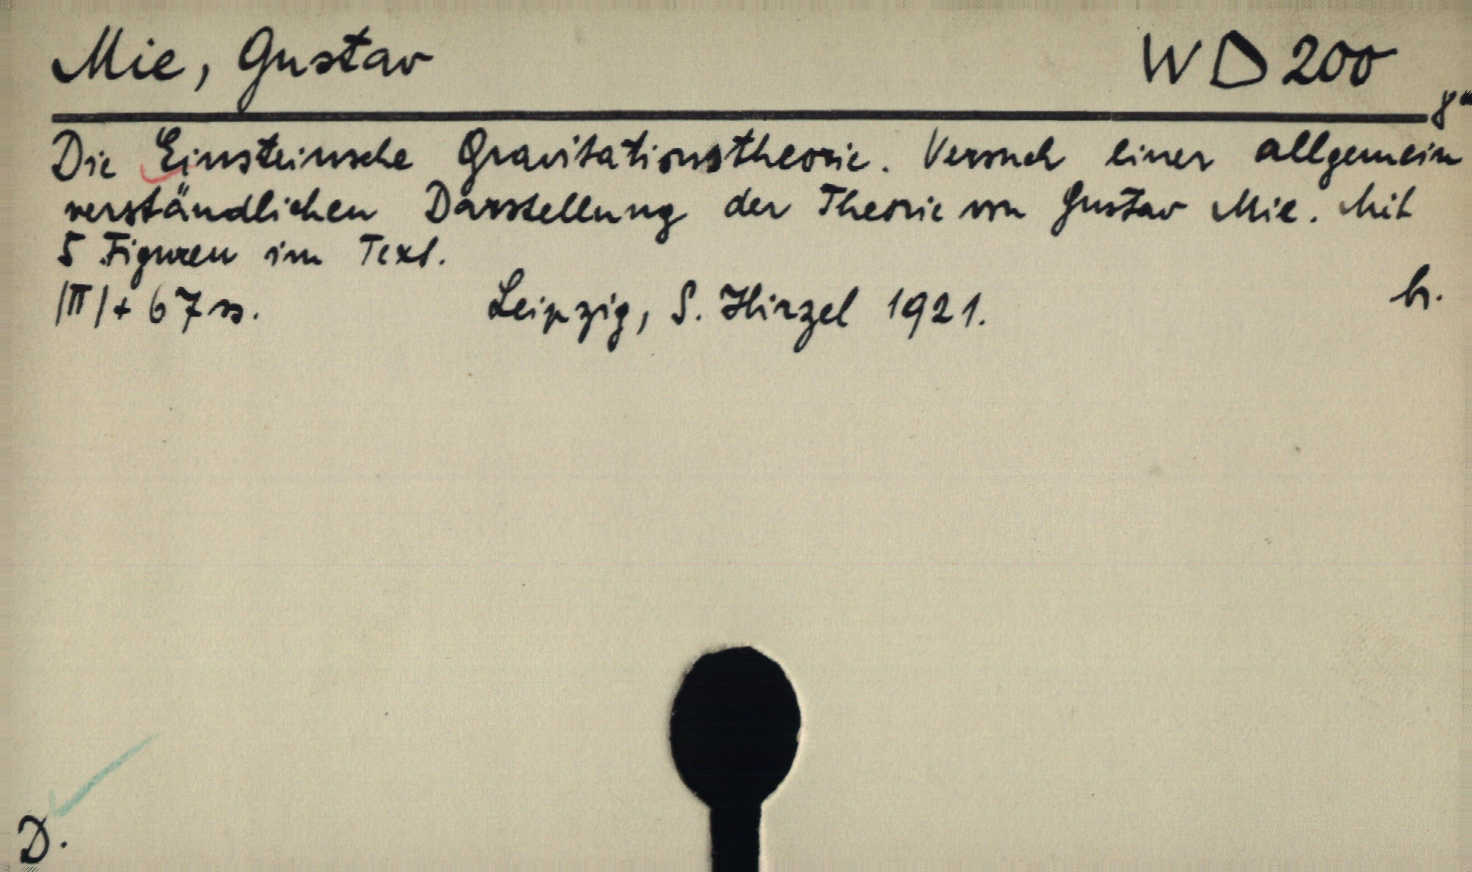 Mie, Gustav WD 200
8°
Die Einsteinsche Gravitationstheorie. Versuch einer allgemein
verständlichen Darstellung der Theorie von Gustav Mie. Mit
5 Figuren im Text.
|II|+ 67 ss. Leipzig, S. Hirzel 1921. br.
D.